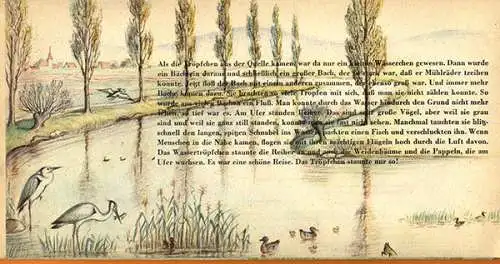 Als die Tröpfchen aus der Quelle kamen, war da nur ein kleines Wässerchen gewesen. Dann wurde
ein Bächlein daraus und schließlich ein großer Bach, der so stark war, daß er Mühlräder treiben
konnte. Jetzt floß der Bach mit einem anderen zusammen, der ebenso groß war. Und immer mehr
Bäche kamen dazu. Sie brachten so viele Tropfen mit sich, daß man sie nicht zählen konnte. So
wurde aus vielen Bächen ein Fluß. Man konnte durch das Wasser hindurch den Grund nicht mehr
sehen, so tief war es. Am Ufer standen Reiher. Das sind sehr große Vögel, aber weil sie grau
sind und weil sie ganz still standen, konnte man sie fast nicht sehen. Manchmal tauchten sie blitz-
schnell den langen, spitzen Schnabel ins Wasser, packten einen Fisch und verschluckten ihn. Wenn
Menschen in die Nähe kamen, flogen sie mit ihren mächtigen Flügeln hoch durch die Luft davon.
Das Wassertröpfchen staunte die Reiher an und auch die Weidenbäume und die Pappeln, die am
Ufer wuchsen. Es war eine schöne Reise. Das Tröpfchen staunte nur so!